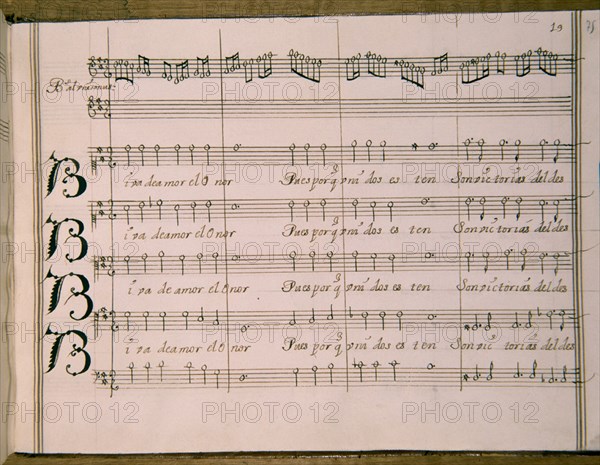 19
B
iva deamor el Onor Pues porq̃ vni dos es ten Son vic torias del des
B
iva deamor el Onor Pues porq̃ vni dos es ten Son vic torias del des
B
iva de amor el Onor Pues porq̃ vni dos es ten Son victorias del des
B
iva deamor el Onor Pues porq̃ vni dos es ten Son vic torias del des
PHOTO 12